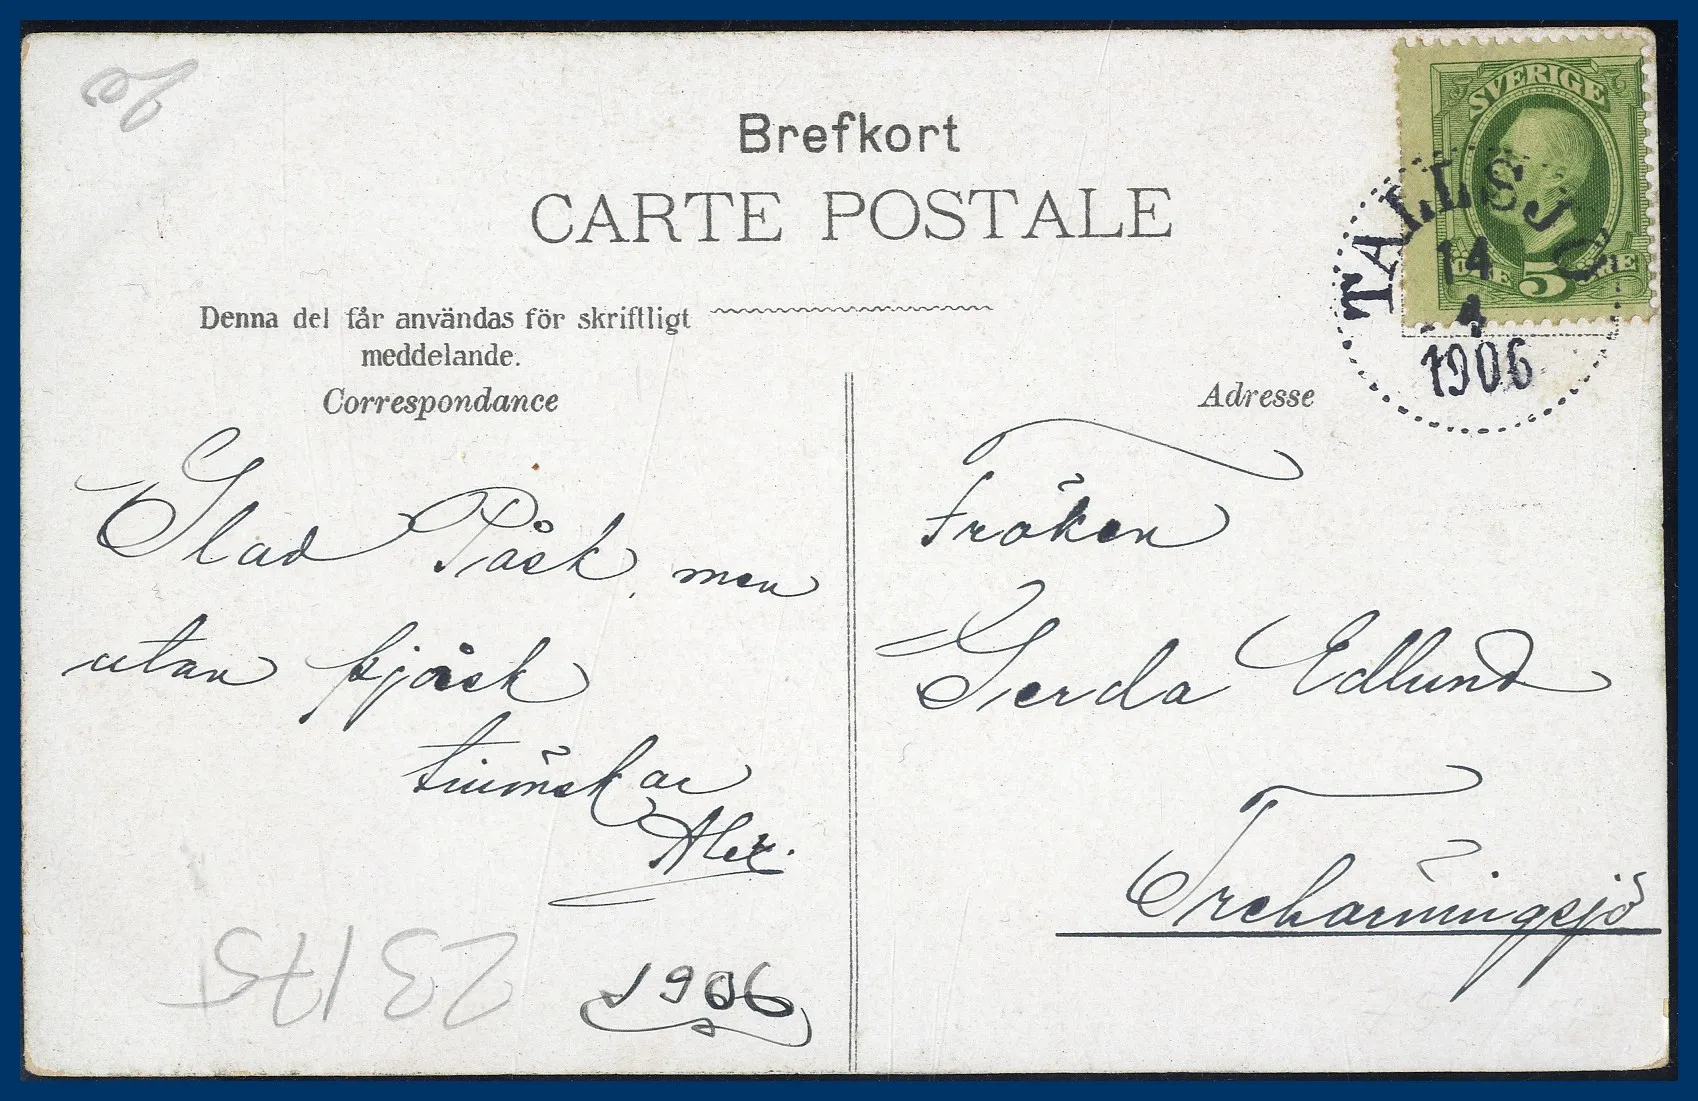 Brefkort
CARTE POSTALE
SVERIGE
ÖRE 5 ÖRE
TALLSJÖ
14
4
1906
Denna del får användas för skriftligt
meddelande.
Correspondance
Adresse
Glad Påsk, men
utan pjåsk
Alex.
1906
Fröken
Gerda Edlund
Trehörningsjö
23175